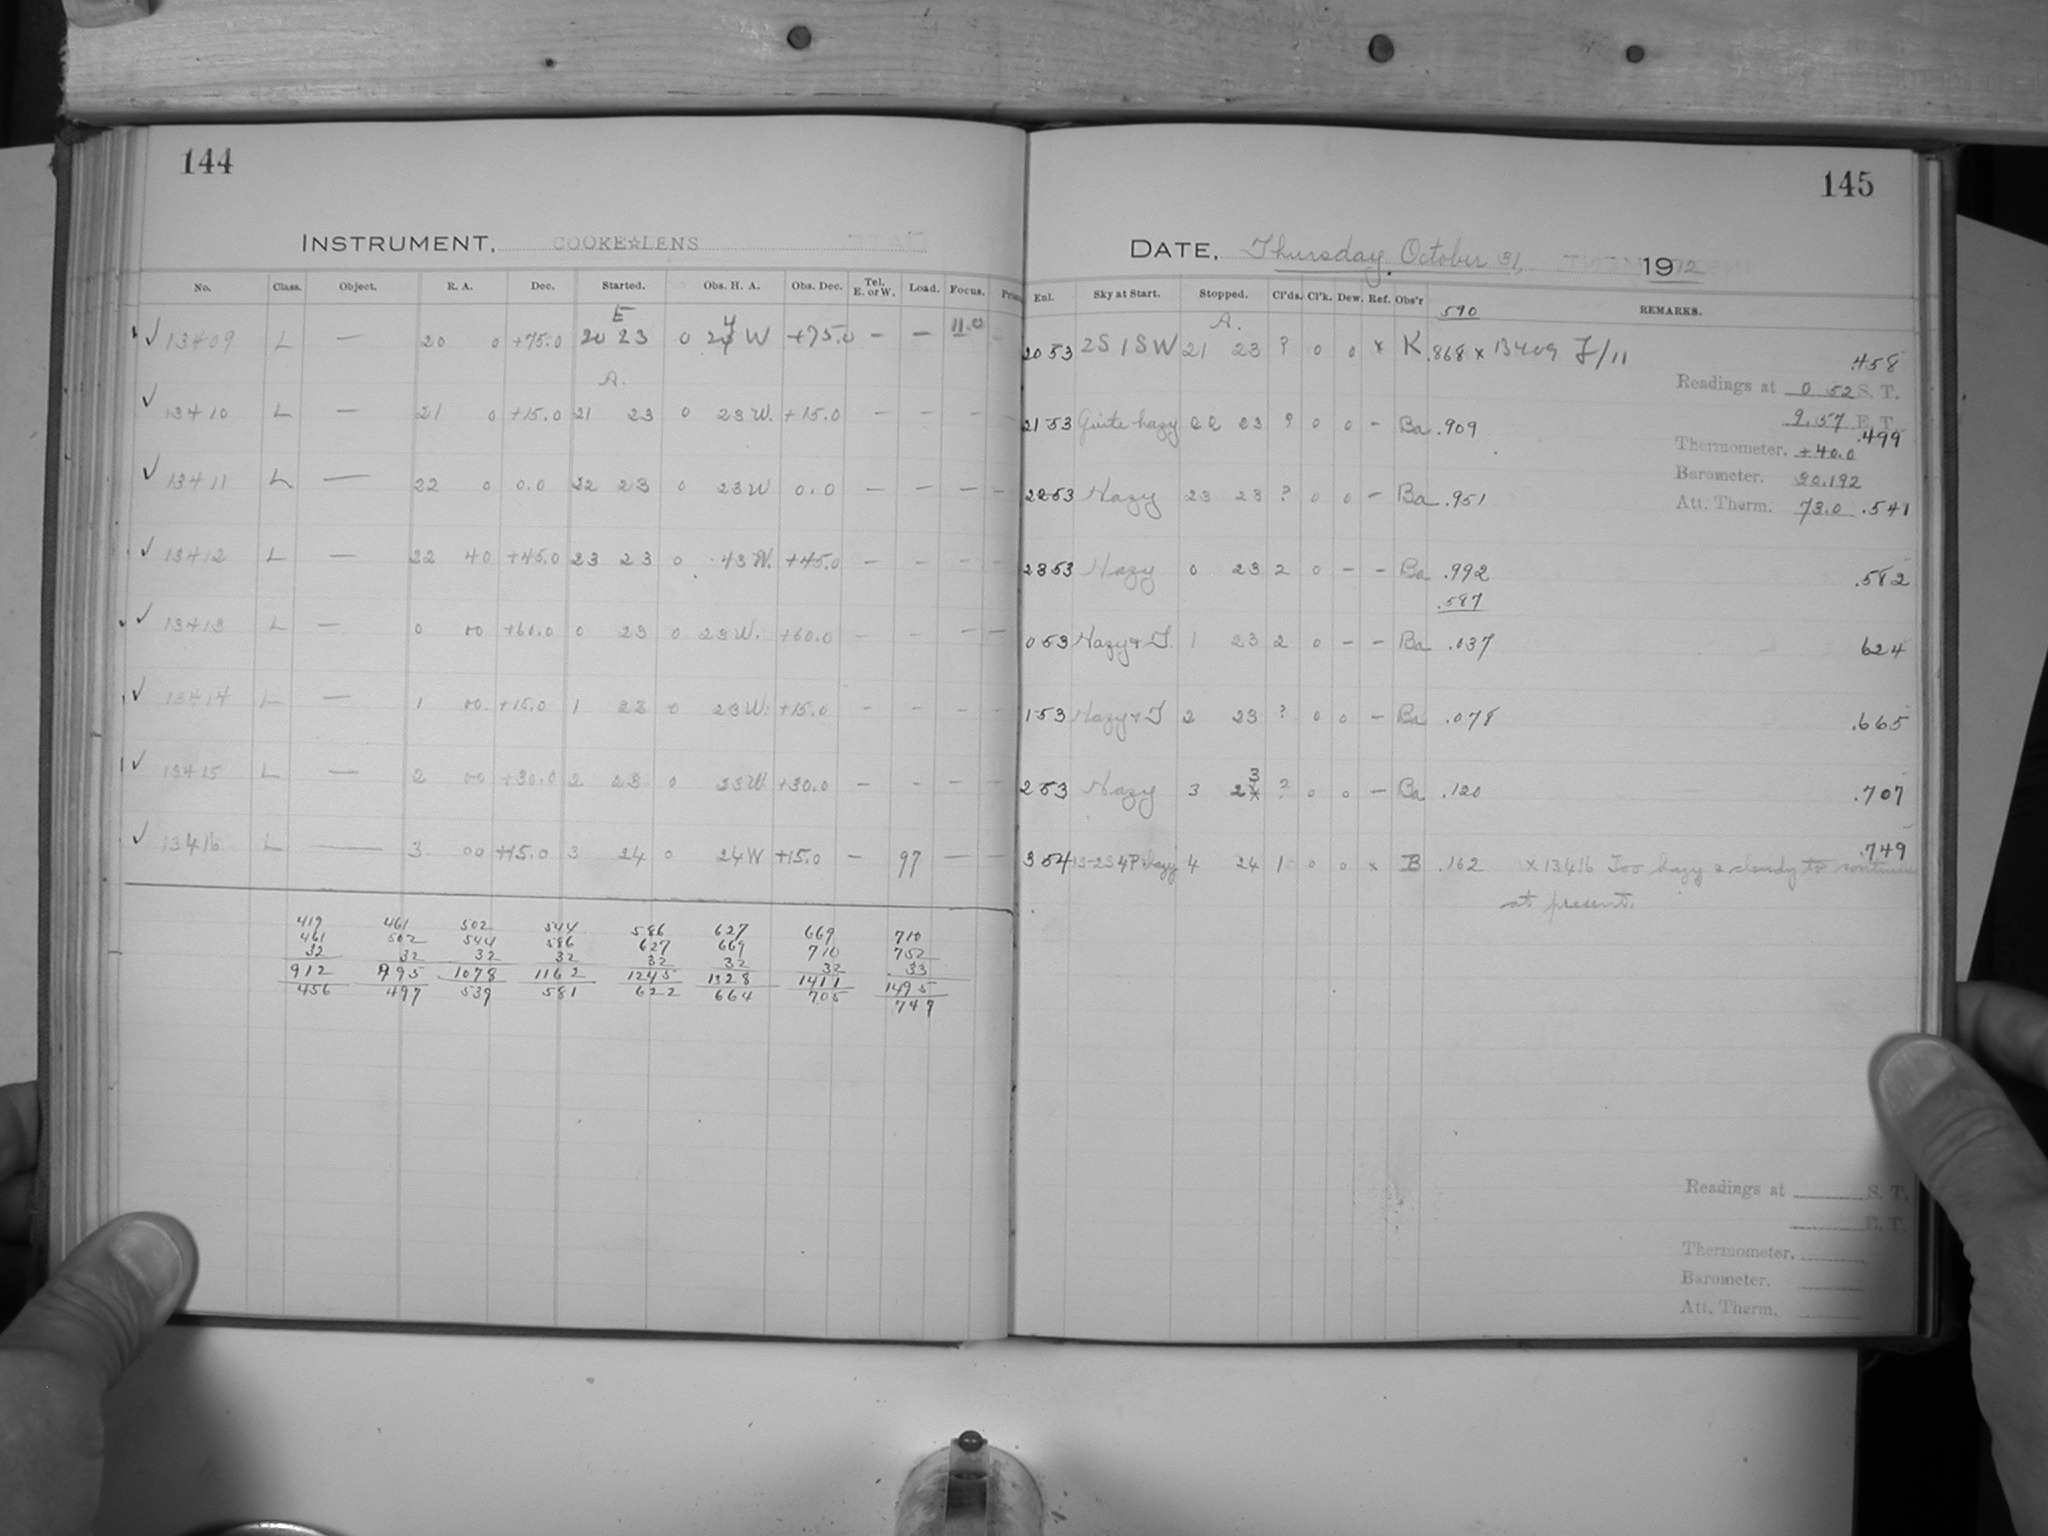 144
INSTRUMENT. COOKE☆LENS
No. Class. Object. R. A. Dec. Started. Obs. H. A. Obs. Dec. Tel. E. or W. Load. Focus.
E
✓ 13409 L — 20 0 +75.0 20 23 0 24 W +75.0 — — 11.0
A.
✓ 13410 L — 21 0 +15.0 21 23 0 23 W. +15.0 — — — —
✓ 13411 L — 22 0 0.0 22 23 0 23 W 0.0 — — — —
✓ 13412 L — 22 40 +45.0 23 23 0 43 W. +45.0 — — — —
✓ 13413 L — 0 00 +60.0 0 23 0 23 W. +60.0 — — — —
✓ 13414 L — 1 00 +15.0 1 23 0 23 W. +15.0 — — — —
✓ 13415 L — 2 00 +30.0 2 23 0 23 W. +30.0 — — — —
✓ 13416 L — 3 00 +15.0 3 24 0 24 W +15.0 — 97 — —
419 461 502 544 586 627 669 710
461 502 544 586 627 669 710 752
32 32 32 32 32 32 32 33
912 995 1078 1162 1245 1328 1411 1495
456 497 539 581 622 664 705 747
145
DATE. Thursday October 31, 1912
Exl. Sky at Start. Stopped. Cl'ds. Cl'k. Dew. Ref. Obs'r REMARKS.
590
A.
20 53 2S 1SW 21 23 ? 0 0 x K .868 x 13409 F/11 .458
Readings at 0 52 S. T.
9.57 E. T.
21 53 Quite hazy 22 23 ? 0 0 — Ba .909 .499
Thermometer. +40.0
Barometer. 30.192
22 53 Hazy 23 23 ? 0 0 — Ba .951
Att. Therm. 73.0 .541
23 53 Hazy 0 23 2 0 — — Ba .992 .582
.597
0 53 Hazy & T. 1 23 2 0 — — Ba .037 624
1 53 Hazy & T 2 23 ? 0 0 — Ba .078 .665
3
2 53 Hazy 3 2 ? 0 0 — Ba .120 .707
3 54 hazy 4 24 1 0 0 x B .162 x 13416 Too hazy & cloudy to continue .749
at present.
Readings at S. T.
E. T.
Thermometer.
Barometer.
Att. Therm.